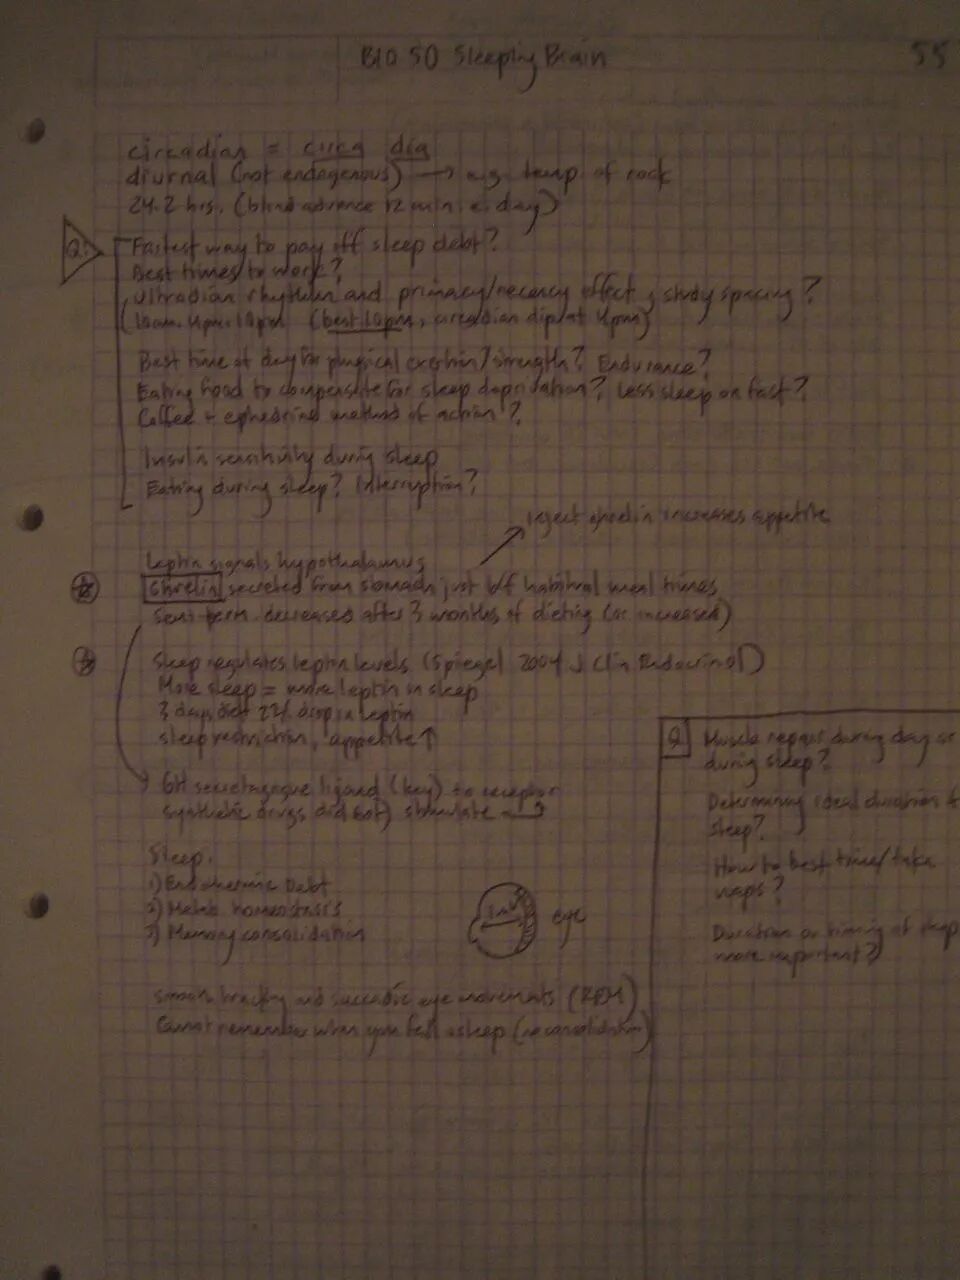 BIO 50 Sleeping Brain
55
circadian = circa dia
diurnal (not endogenous) → e.g. temp of rock
24.2 hrs. (blind advance 12 min. e. day)
Q:
Fastest way to pay off sleep debt?
Best times to work?
Ultradian rhythm and primacy/recency effect & study spacing?
10am. 4pm. 10pm (best 10pm, circadian dip at 4pm)
Best time of day for physical exertion/strength? Endurance?
Eating food to compensate for sleep deprivation? Less sleep on fast?
Coffee + ephedrine method of action?
Insulin sensitivity during sleep
Eating during sleep? Interruption?
inject ghrelin increases appetite
Leptin signals hypothalamus
Ghrelin secreted from stomach just b/f habitual meal times
decreased after 3 months of dieting (or increased)
Sleep regulates leptin levels (Spiegel 2004 J Clin Endocrinol)
More sleep = more leptin in sleep
3 days diet 22% drop in leptin
sleep restriction, appetite ↑
GH secretagogue ligand (key) to receptor
synthetic drugs did 1st) stimulate
Sleep.
1) Endothermic Debt
2) Metab. homeostasis
3) Memory consolidation
eye
smooth tracking and saccadic eye movements (REM)
Cannot remember when you fall asleep (no consolidation)
Q
Muscle repair during day or
during sleep?
Determining ideal duration of
sleep?
How to best time/take
naps?
Duration or timing of sleep
more important?